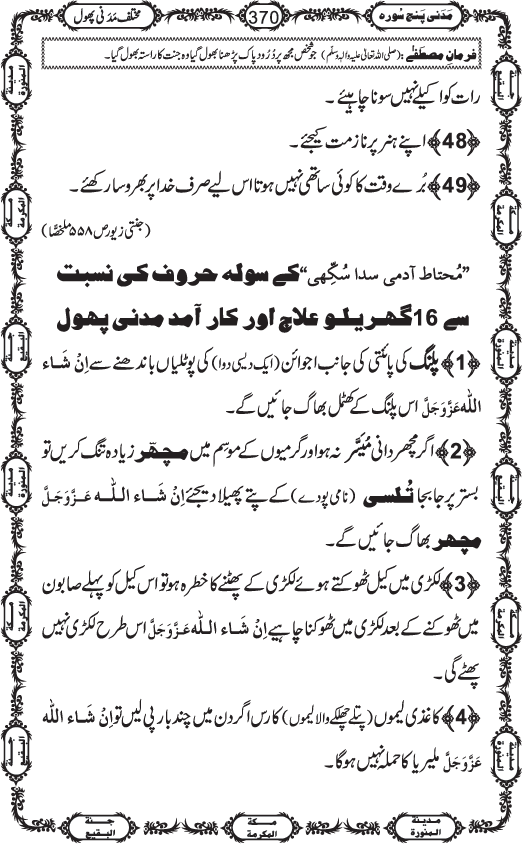 مَدَنی پنج سُورہ
370
مختلف مَدَنی پھول
فرمانِ مصطَفٰے : (صلی اللہ تعالیٰ علیہ واٰلہٖ وسلّم) جو شخص مجھ پر دُرُود پاک پڑھنا بھول گیا وہ جنت کا راستہ بھول گیا۔
رات کو اکیلے نہیں سونا چاہئیے ۔
﴿48﴾ اپنے ہنر پر نازمت کیجئے۔
﴿49﴾ بُرے وقت کا کوئی ساتھی نہیں ہوتا اس لیے صرف خدا پر بھروسا رکھئے۔
(جنتی زیور ص ۵۵۸ ملخصًا)
”مُحتاط آدمی سدا سُکِّھی“ کے سولہ حروف کی نسبت
سے 16 گھریلو علاج اور کار آمد مدنی پھول
﴿1﴾ پلنگ کی پائنتی کی جانب اجوائن (ایک دیسی دوا) کی پوٹلیاں باندھنے سے اِنْ شَاء
اللہ عَزَّوَجَلَّ اس پلنگ کے کھٹمل بھاگ جائیں گے۔
﴿2﴾ اگر مچھر دانی مُیَسَّر نہ ہو اور گرمیوں کے موسم میں مچھّر زیادہ تنگ کریں تو
بستر پر جا بجا تُلسی (نامی پودے) کے پتے پھیلا دیجئے اِنْ شَاءَ اللہ عَزَّوَجَلَّ
مچھر بھاگ جائیں گے۔
﴿3﴾ لکڑی میں کیل ٹھوکتے ہوئے لکڑی کے پھٹنے کا خطرہ ہو تو اس کیل کو پہلے صابون
میں ٹھوکنے کے بعد لکڑی میں ٹھوکنا چاہیے اِنْ شَاءَ اللہ عَزَّوَجَلَّ اس طرح لکڑی نہیں
پھٹے گی۔
﴿4﴾ کاغذی لیموں (پتلے چھلکے والا لیموں) کا رس اگر دن میں چند بار پی لیں تو اِنْ شَاءَ اللہ
عَزَّوَجَلَّ ملیریا کا حملہ نہیں ہوگا۔
مدينة المنورة
جنّة البقيع
مكة المكرمة
مكة المكرمة
جنّة البقيع
مدينة المنورة
مدينة المنورة
جنّة البقيع
مكة المكرمة
مكة المكرمة
جنّة البقيع
مدينة المنورة
جنّة البقيع
مكة المكرمة
مدينة المنورة